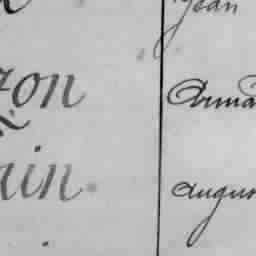 Jean
zon Arma
ain. Augus